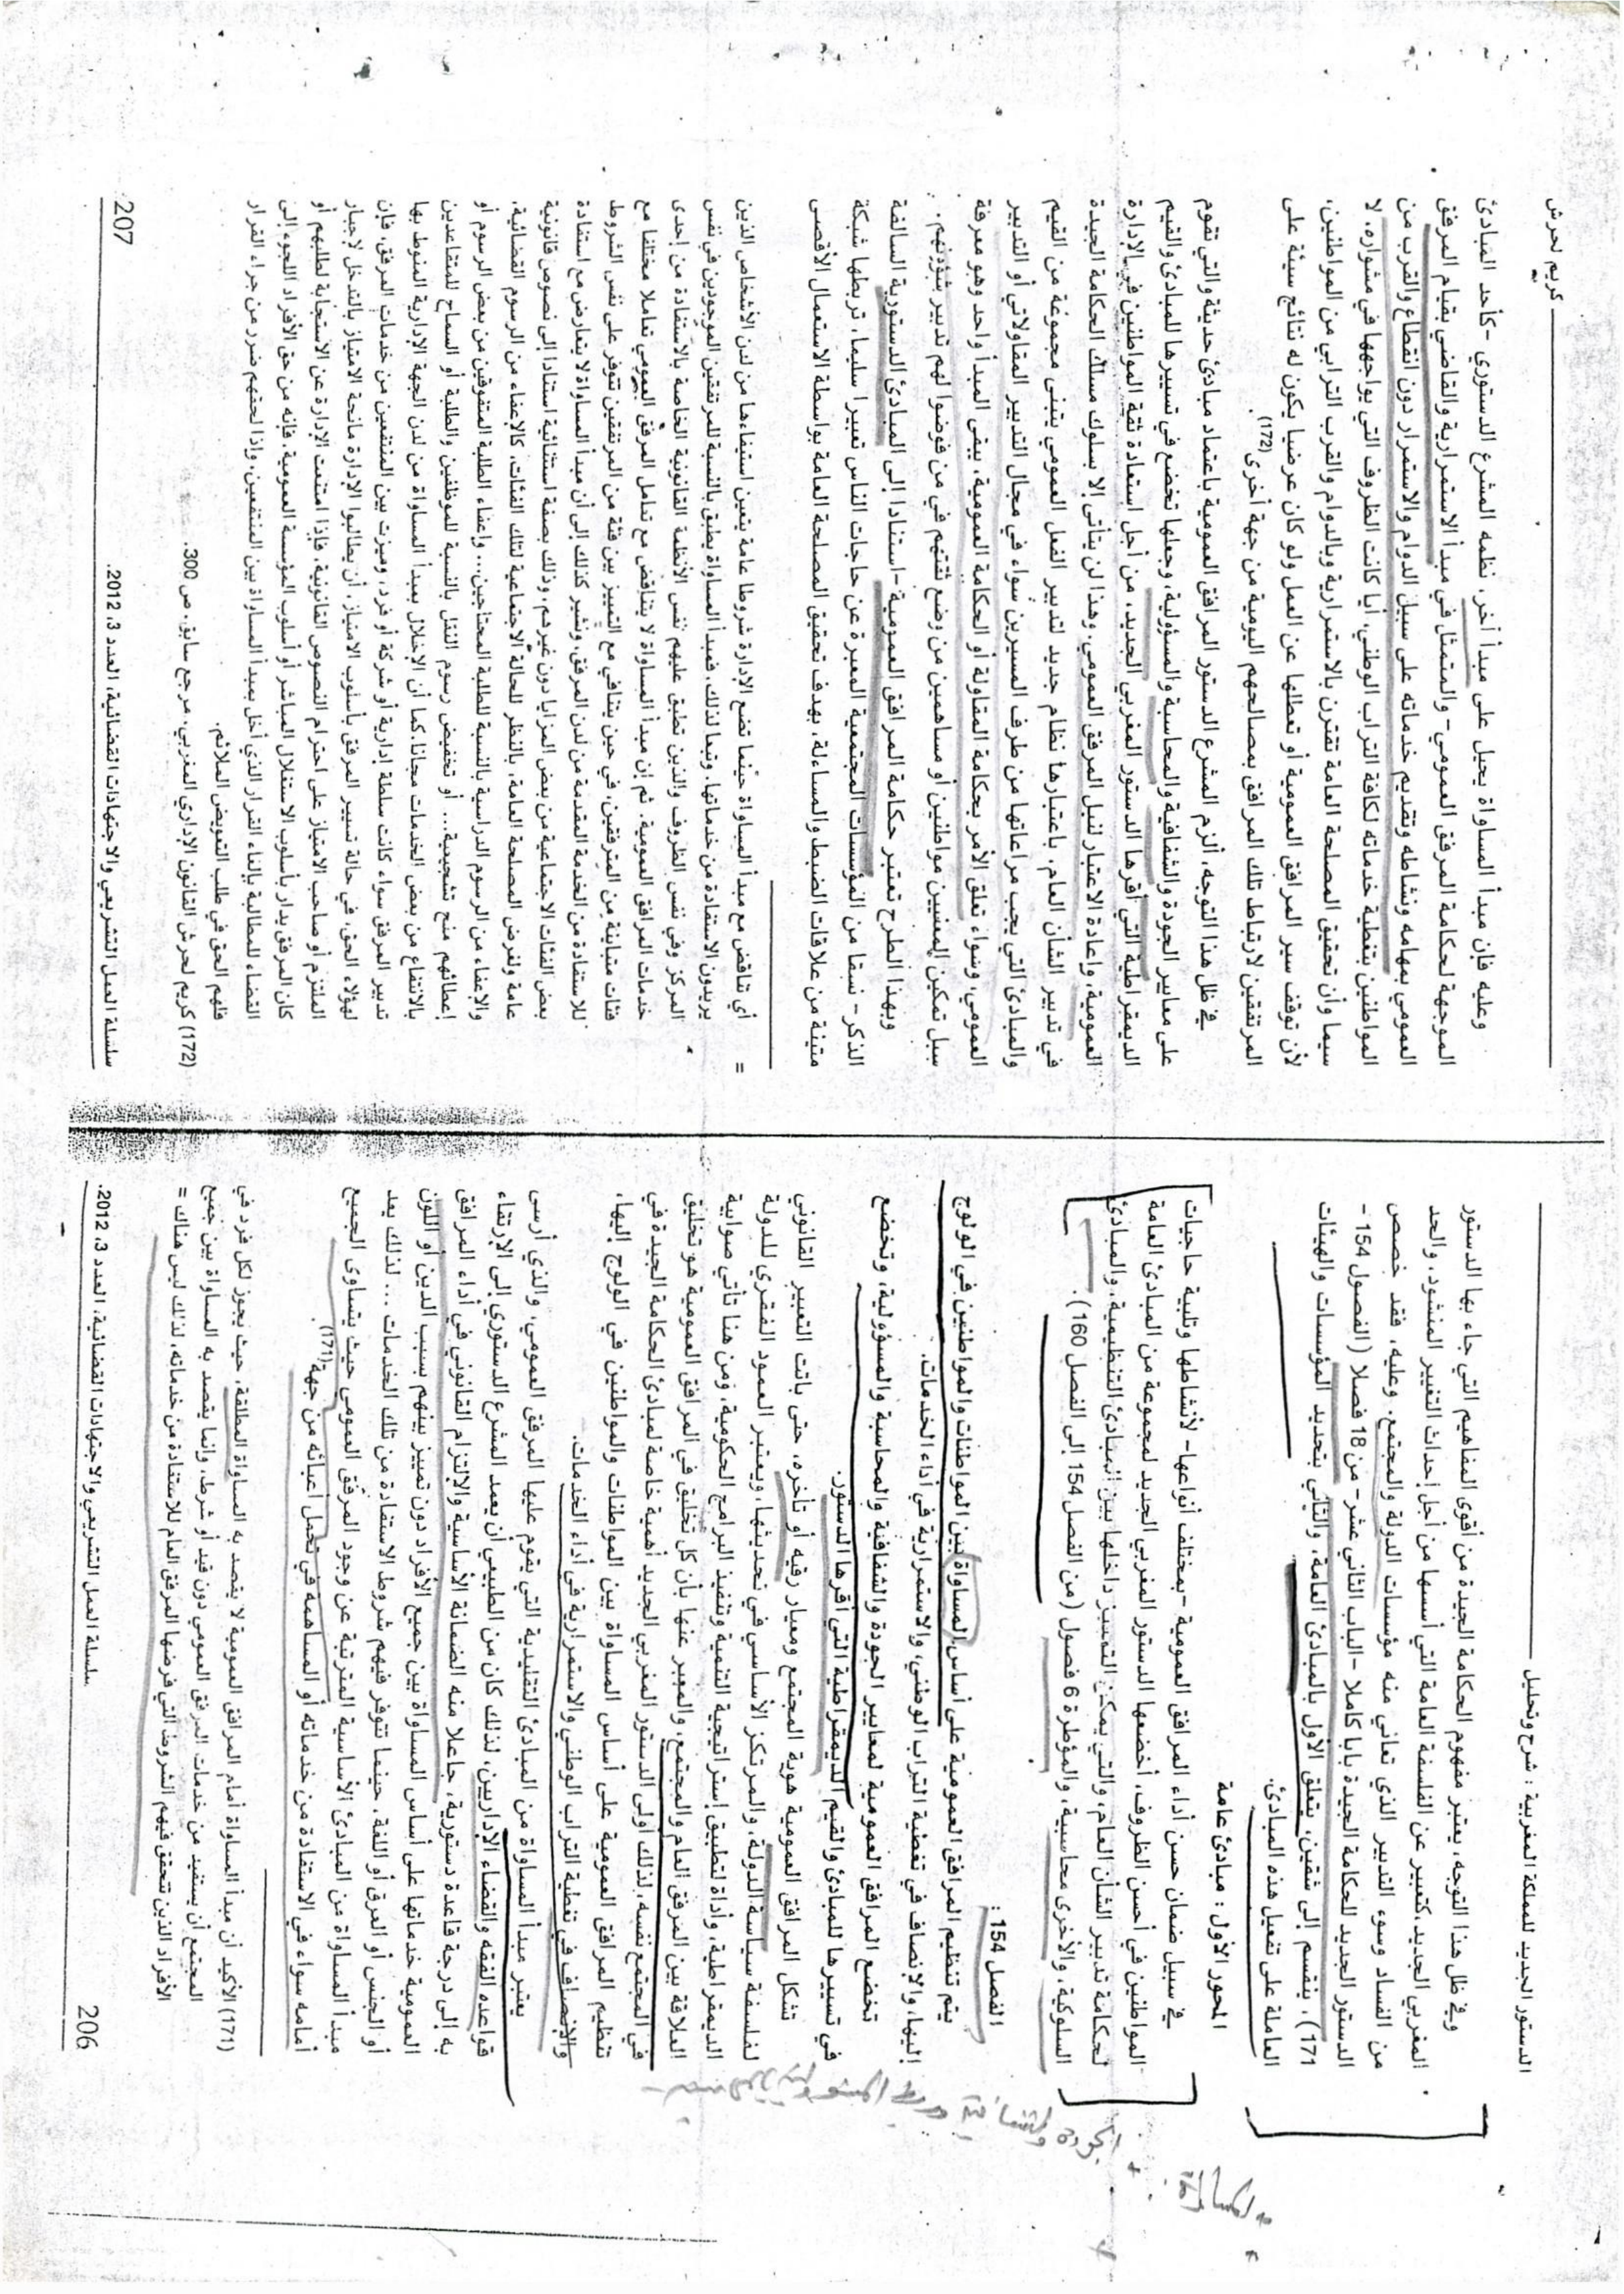 الدستور الجديد للمملكة المغربية : شرح وتحليل
وفي ظل هذا التوجه، يعتبر مفهوم الحكامة الجيدة من أقوى المفاهيم التي جاء بها الدستور
المغربي الجديد، كتعبير عن الفلسفة العامة التي أسسها من أجل إحداث التغيير المنشود، والحد
من الفساد وسوء التدبير الذي تعاني منه مؤسسات الدولة والمجتمع. وعليه، فقد خصص
الدستور الجديد للحكامة الجيدة بابا كاملا -الباب الثاني عشر- من 18 فصلا (الفصول 154 -
171)، ينقسم إلى شقين، يتعلق الأول بالمبادئ العامة، والثاني بتحديد المؤسسات والهيئات
العاملة على تفعيل هذه المبادئ.
المحور الأول : مبادئ عامة
في سبيل ضمان حسن أداء المرافق العمومية -بمختلف أنواعها- لأنشطتها وتلبية حاجيات
المواطنين في أحسن الظروف، أخضعها الدستور المغربي الجديد لمجموعة من المبادئ العامة
لحكامة تدبير الشأن العام، والتي يمكن التمييز داخلها بين المبادئ التنظيمية، والمبادئ
السلوكية، والأخرى محاسبية، والمؤطرة 6 فصول (من الفصل 154 إلى الفصل 160).
الفصل 154 :
يتم تنظيم المرافق العمومية على أساس المساواة بين المواطنات والمواطنين في الولوج
إليها، والإنصاف في تغطية التراب الوطني، والاستمرارية في أداء الخدمات.
تخضع المرافق العمومية لمعايير الجودة والشفافية والمحاسبة والمسؤولية، وتخضع
في تسييرها للمبادئ والقيم الديمقراطية التي أقرها الدستور.
تشكل المرافق العمومية هوية المجتمع ومعيار رقيه أو تأخره، حتى باتت التعبير القانوني
لفلسفة سياسة الدولة، والمرتكز الأساسي في تحديثها، ويعتبر العمود الفقري للدولة
الديمقراطية، وأداة لتطبيق إستراتيجية التنمية وتنفيذ البرامج الحكومية، ومن هنا تأتي صوابية
العلاقة بين المرفق العام والمجتمع، والمعبر عنها بأن كل تخليق في المرافق العمومية هو تخليق
في المجتمع نفسه، لذلك أولى الدستور المغربي الجديد أهمية خاصة لمبادئ الحكامة الجيدة في
تنظيم المرافق العمومية على أساس المساواة بين المواطنات والمواطنين في الولوج إليها،
والإنصاف في تغطية التراب الوطني والاستمرارية في أداء الخدمات.
يعتبر مبدأ المساواة من المبادئ التقليدية التي يقوم عليها المرفق العمومي، والذي أرسى
قواعده الفقه والقضاء الإداريين، لذلك كان من الطبيعي أن يعمد المشرع الدستوري إلى الارتقاء
به إلى درجة قاعدة دستورية، جاعلا منه الضمانة الأساسية والالتزام القانوني في أداء المرافق
العمومية خدماتها على أساس المساواة بين جميع الأفراد دون تمييز بينهم بسبب الدين أو اللون
أو الجنس أو العرق أو اللغة، حينما تتوفر فيهم شروط الاستفادة من تلك الخدمات ... لذلك يعد
مبدأ المساواة من المبادئ الأساسية المترتبة عن وجود المرفق العمومي حيث يتساوى الجميع
أمامه سواء في الاستفادة من خدماته أو المساهمة في تحمل أعبائه من جهة(171).
(171) الأكيد أن مبدأ المساواة أمام المرافق العمومية لا يقصد به المساواة المطلقة، حيث يجوز لكل فرد في
المجتمع أن يستفيد من خدمات المرفق العمومي دون قيد أو شرط، وإنما يقصد به المساواة بين جميع
الأفراد الذين تتحقق فيهم الشروط التي فرضها المرفق العام للاستفادة من خدماته، لذلك ليس هناك =
206 سلسلة العمل التشريعي والاجتهادات القضائية، العدد 3، 2012.
المساواة
الجودة والشفافية
كريم لحرش
وعليه فإن مبدأ المساواة يحيل على مبدأ آخر، نظمه المشرع الدستوري -كأحد المبادئ
الموجهة لحكامة المرفق العمومي- والمتمثل في مبدأ الاستمرارية والقاضي بقيام المرفق
العمومي بمهامه ونشاطه وتقديم خدماته على سبيل الدوام والاستمرار دون انقطاع والقرب من
المواطنين بتغطية خدماته لكافة التراب الوطني، أيا كانت الظروف التي يواجهها في مشواره، لا
سيما وأن تحقيق المصلحة العامة تقترن بالاستمرارية وبالدوام والقرب الترابي من المواطنين،
لأن توقف سير المرافق العمومية أو تعطلها عن العمل ولو كان عرضيا يكون له نتائج سيئة على
المرتفقين لارتباط تلك المرافق بمصالحهم اليومية من جهة أخرى(172).
في ظل هذا التوجه، ألزم المشرع الدستور المرافق العمومية باعتماد مبادئ حديثة والتي تقوم
على معايير الجودة والشفافية والمحاسبة والمسؤولية، وجعلها تخضع في تسييرها للمبادئ والقيم
الديمقراطية التي أقرها الدستور المغربي الجديد، من أجل استعادة ثقة المواطنين في الإدارة
العمومية، وإعادة الاعتبار لنبل المرفق العمومي. وهذا لن يتأتى إلا بسلوك مسلك الحكامة الجيدة
في تدبير الشأن العام، باعتبارها نظام جديد لتدبير الفعل العمومي يتبنى مجموعة من القيم
والمبادئ التي يجب مراعاتها من طرف المسيرين سواء في مجال التدبير المقاولاتي أو التدبير
العمومي، وسواء تعلق الأمر بحكامة المقاولة أو الحكامة العمومية، يبقى المبدأ واحد وهو معرفة
سبل تمكين المعنيين مواطنين أو مساهمين من وضع ثقتهم في من فوضوا لهم تدبير شؤونهم.
وبهذا الطرح تعتبر حكامة المرافق العمومية -استنادا إلى المبادئ الدستورية السالفة
الذكر- نسقا من المؤسسات المجتمعية المعبرة عن حاجات الناس تعبيرا سليما، تربطها شبكة
متينة من علاقات الضبط والمساءلة، بهدف تحقيق المصلحة العامة بواسطة الاستعمال الأقصى
= أي تناقض مع مبدأ المساواة حينما تضع الإدارة شروطا عامة يتعين استيفاءها من لدن الأشخاص الذين
يريدون الاستفادة من خدماتها. وتبعا لذلك، فمبدأ المساواة يطبق بالنسبة للمرتفقين الموجودين في نفس
المركز وفي نفس الظروف والذين تطبق عليهم نفس الأنظمة القانونية الخاصة بالاستفادة من إحدى
خدمات المرافق العمومية. ثم إن مبدأ المساواة لا يتناقض مع تعامل المرفق العمومي تعاملا مختلفا مع
فئات متباينة من المترفقين، في حين يتنافى مع التمييز بين فئة من المرتفقين تتوفر على نفس الشروط
للاستفادة من الخدمة المقدمة من لدن المرفق، ونشير كذلك إلى أن مبدأ المساواة لا يتعارض مع استفادة
بعض الفئات الاجتماعية من بعض المزايا دون غيرهم، وذلك بصفة استثنائية استنادا إلى نصوص قانونية
عامة ولغرض المصلحة العامة، بالنظر للحالة الاجتماعية لتلك الفئات، كالإعفاء من الرسوم القضائية،
والإعفاء من الرسوم الدراسية بالنسبة للطلبة المحتاجين... وإعفاء الطلبة المتفوقين من بعض الرسوم أو
إعطائهم منح تشجيعية... أو تخفيض رسوم النقل بالنسبة للموظفين والطلبة أو السماح للمتقاعدين
بالانتفاع من بعض الخدمات مجانا. كما أن الإخلال بمبدأ المساواة من لدن الجهة الإدارية المنوط بها
تدبير المرفق سواء كانت سلطة إدارية أو شركة أو فرد، وميزت بين المنتفعين من خدمات المرفق، فإن
لهؤلاء الحق، في حالة تسيير المرفق بأسلوب الامتياز، أن يطالبوا الإدارة مانحة الامتياز بالتدخل لإجبار
الملتزم أو صاحب الامتياز على احترام النصوص القانونية، فإذا امتنعت الإدارة عن الاستجابة لطلبهم أو
كان المرفق يدار بأسلوب الاستغلال المباشر أو أسلوب المؤسسة العمومية فإنه من حق الأفراد اللجوء إلى
القضاء للمطالبة بإلغاء القرار الذي أخل بمبدأ المساواة بين المنتفعين، وإذا لحقهم ضرر من جراء القرار
فلهم الحق في طلب التعويض الملائم.
(172) كريم لحرش القانون الإداري المغربي. مرجع سابق، ص 300.
سلسلة العمل التشريعي والاجتهادات القضائية، العدد 3، 2012. 207